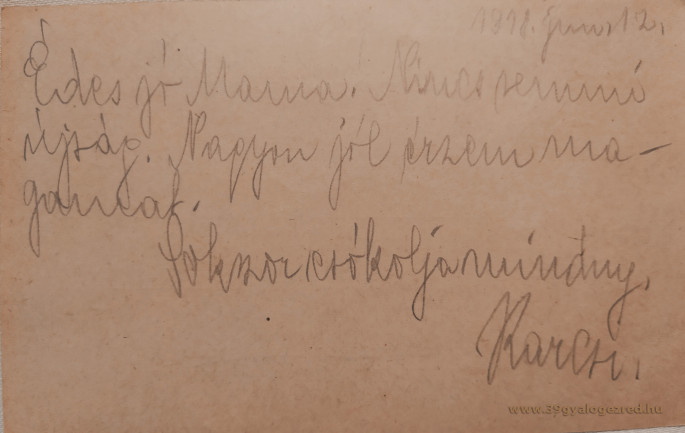 1918. jun. 12.
Édes jó Mama! Nincs semmi
újság. Nagyon jól érzem ma-
gamat.
Sokszor csókolja mindny.
Karcsi.
www.39gyalogezred.hu